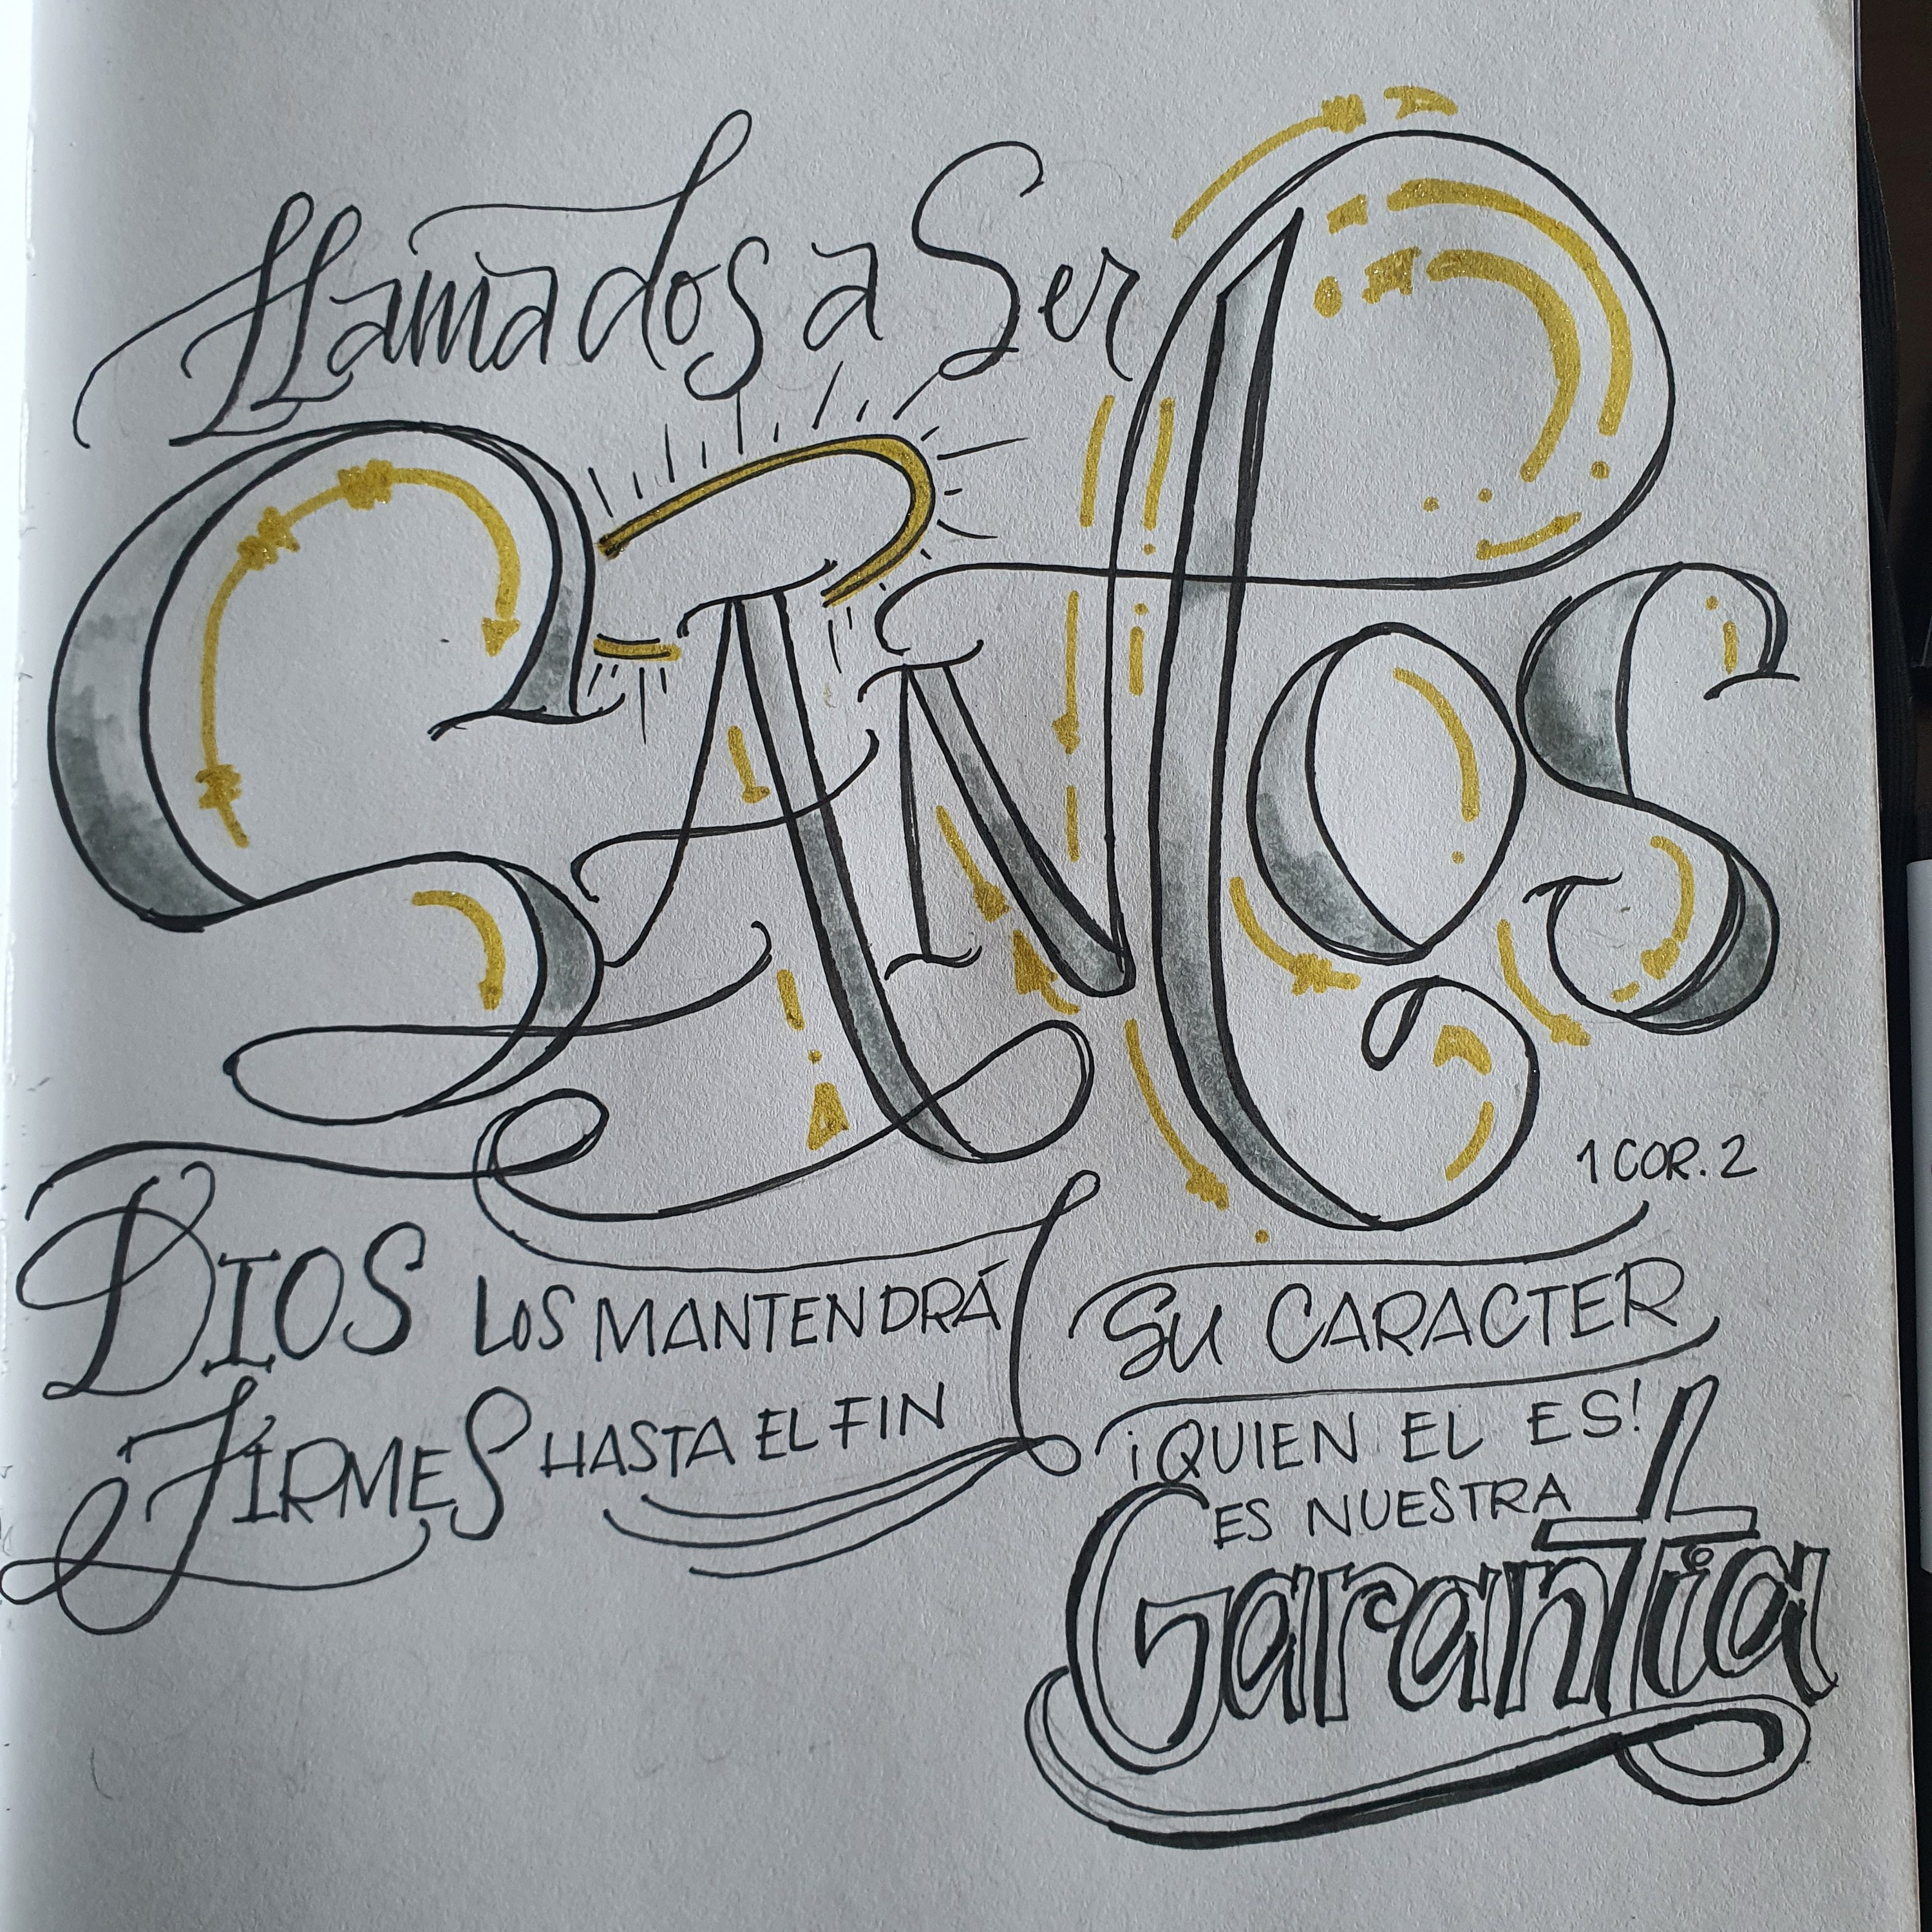 Llamados a Ser
SANtos
1 COR. 2
DIOS LOS MANTENDRÁ
FIRMES HASTA EL FIN
SU CARACTER
¡QUIEN EL ES!
ES NUESTRA
Garantia